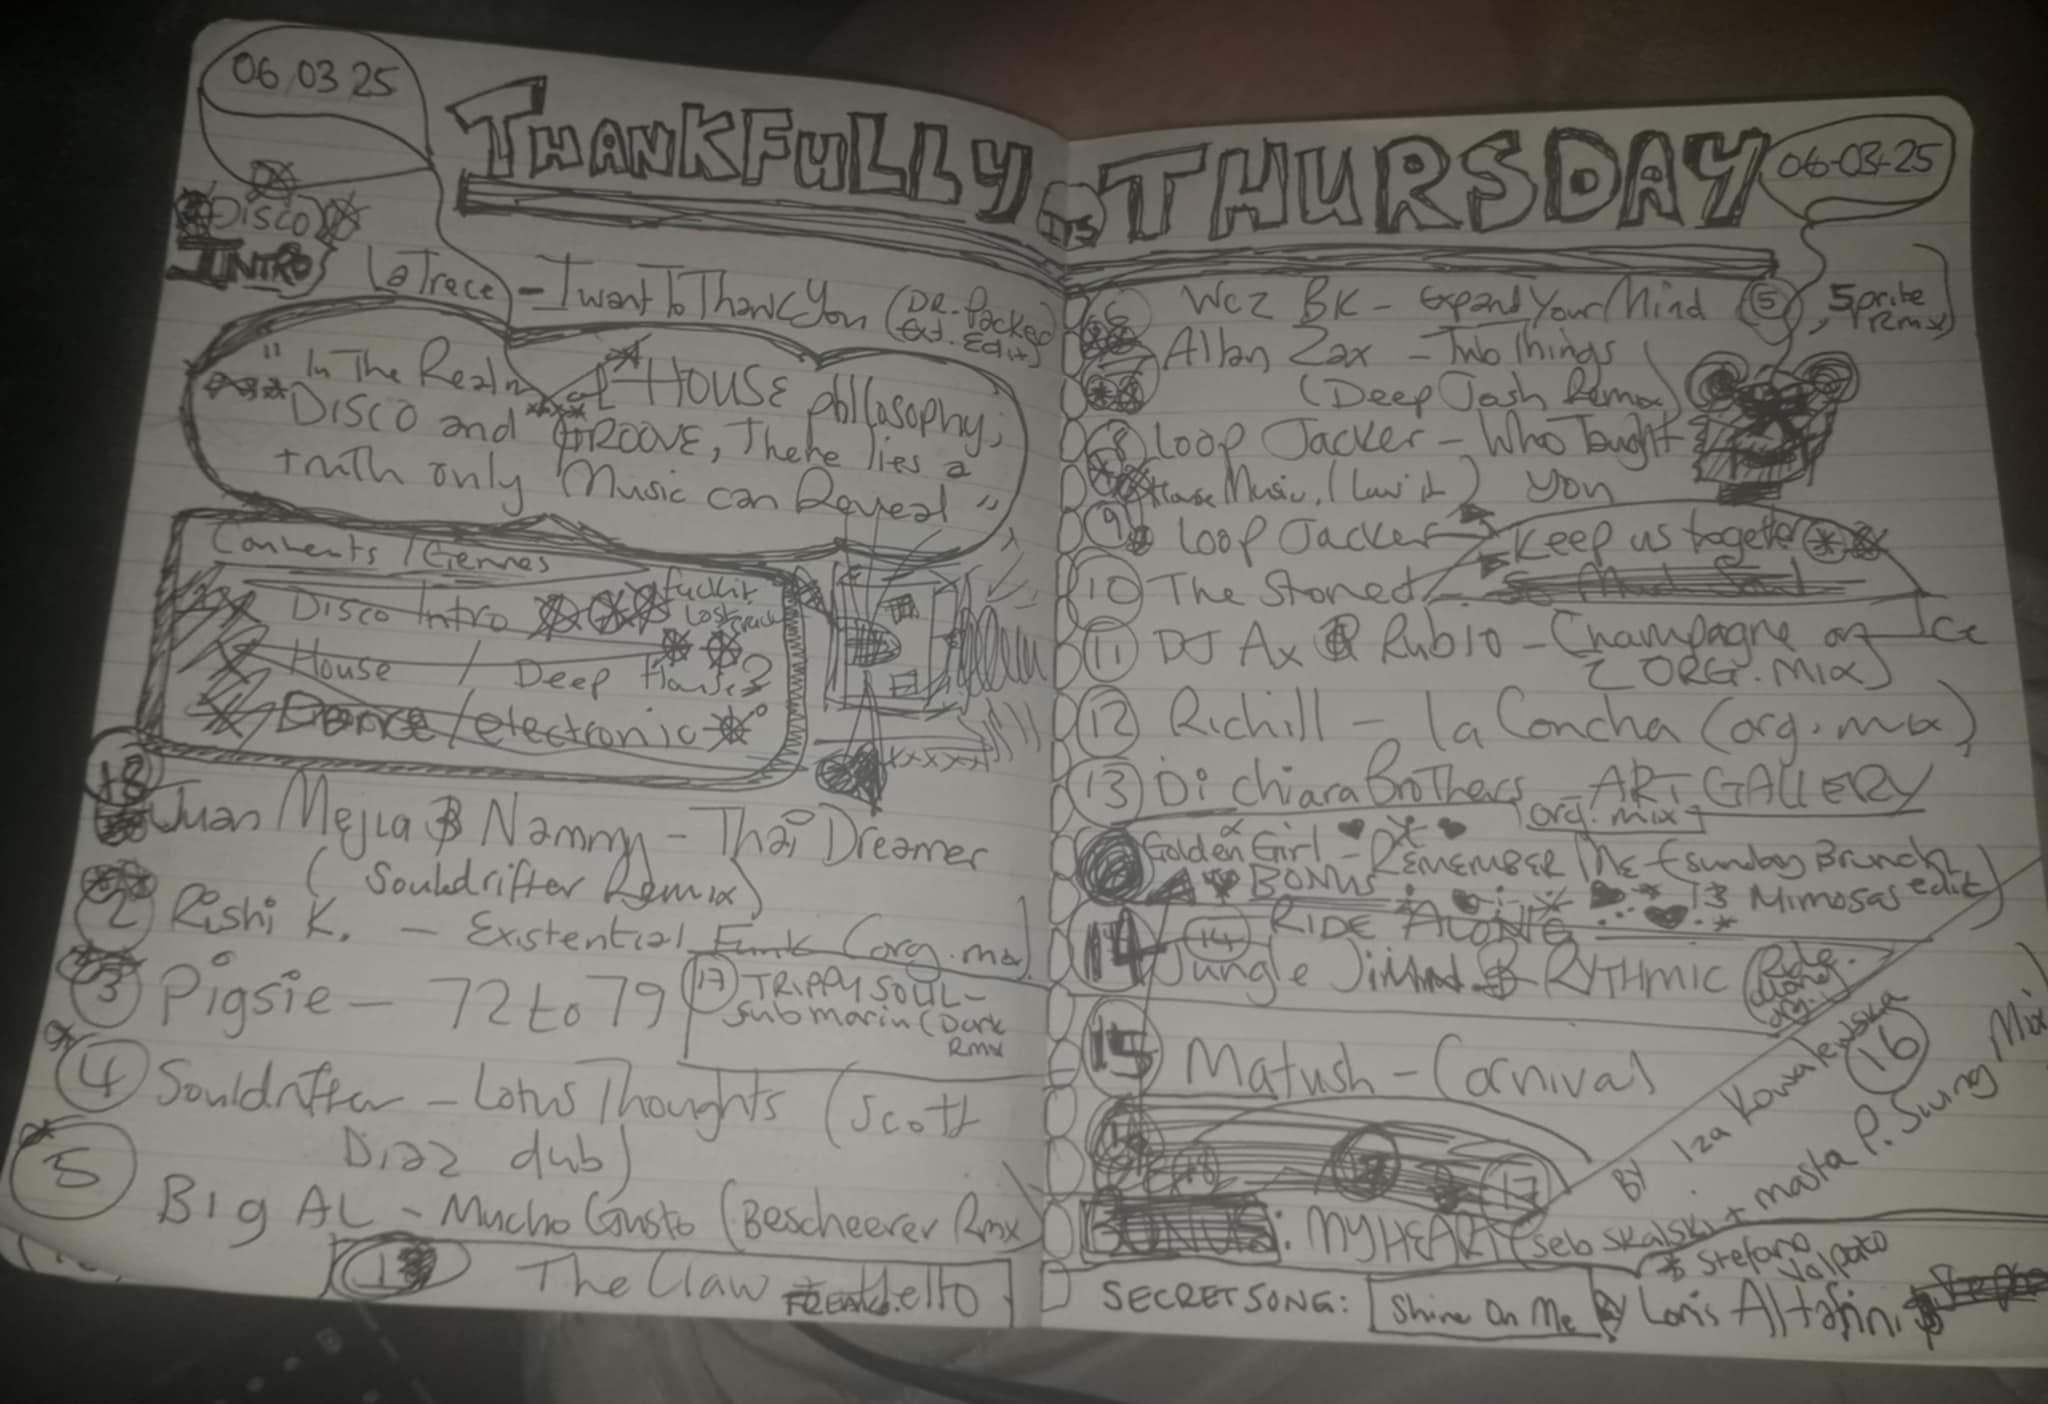 06/03/25
THANKFULLY
DISCO
INTRO
LaTrece - I want To Thank You (DR. Packer
Ext. Edit)
"In The Realm of HOUSE phIlosophy,
DISCO and GROOVE, There lies a
truth only Music can Reveal"
Contents / Genres
Disco Intro
House / Deep House?
Dance / electronic
Juan Mejia & Nammy - Thai Dreamer
(Souldrifter Remix)
2 Rishi K. - Existential Funk (org. mix)
3 Pigsie - 72 to 79
17 TRIPPY SOUL -
Submarin (Dark
Rmx
4 Souldrifter - Lotus Thoughts (Scott
Diaz dub)
5 Big AL - Mucho Gusto (Bescheerer Rmx)
The Claw - Hello
FREAKS.
THURSDAY
06-03-25
6 Wez BK - Expand Your Mind 5prite
Rmx)
Allan Zax - Two Things
(Deep Josh Remix)
8 Loop Jacker - Who Taught
House Music, (Luv it) You
9 Loop Jacker Keep us together
10 The Stoned -
11 DJ Ax & Rubio - Champagne on Ice
(ORG. MIX)
12 Richill - La Concha (org. mix)
13 Di Chiara Brothers ART GALLERY
(org. mix)
Golden Girl - REMEMBER Me (Sunday Brunch
BONUS & Mimosas edit)
RIDE ALONG
14 14 Jungle Jim & RYTHMIC (Ride
Along
org.)
15 Matush - Carnival
16
BY Iza Kowalewska
+ masta P. Swung Mix
17
BONUS: MY HEART (seb skalski
SECRET SONG: Shine On Me By Loris Altafini
& Stefano
Valpato